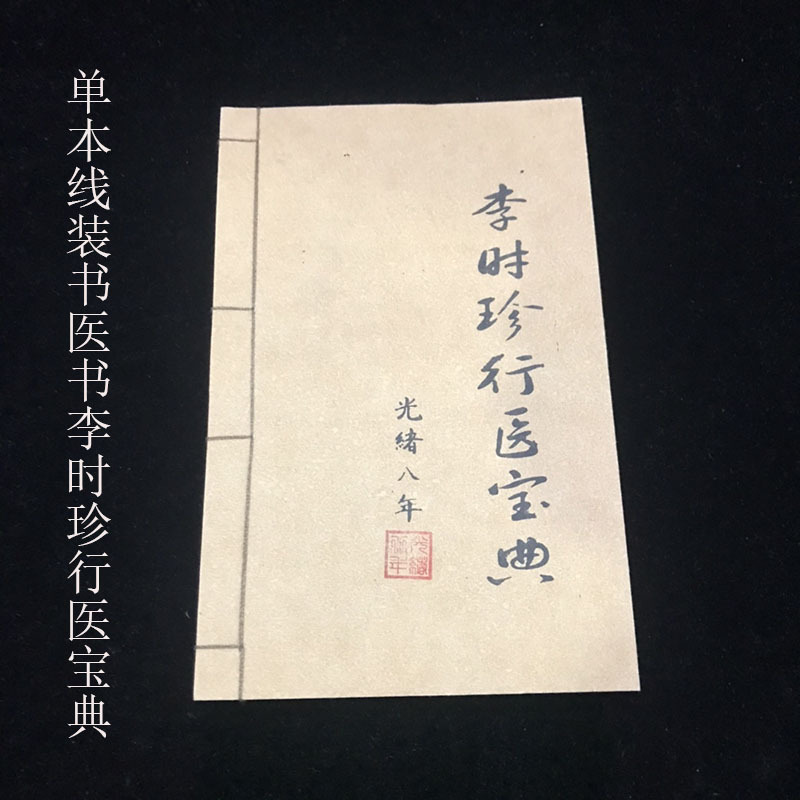 单本线装书医书李时珍行医宝典
李时珍行医宝典
光緒八年